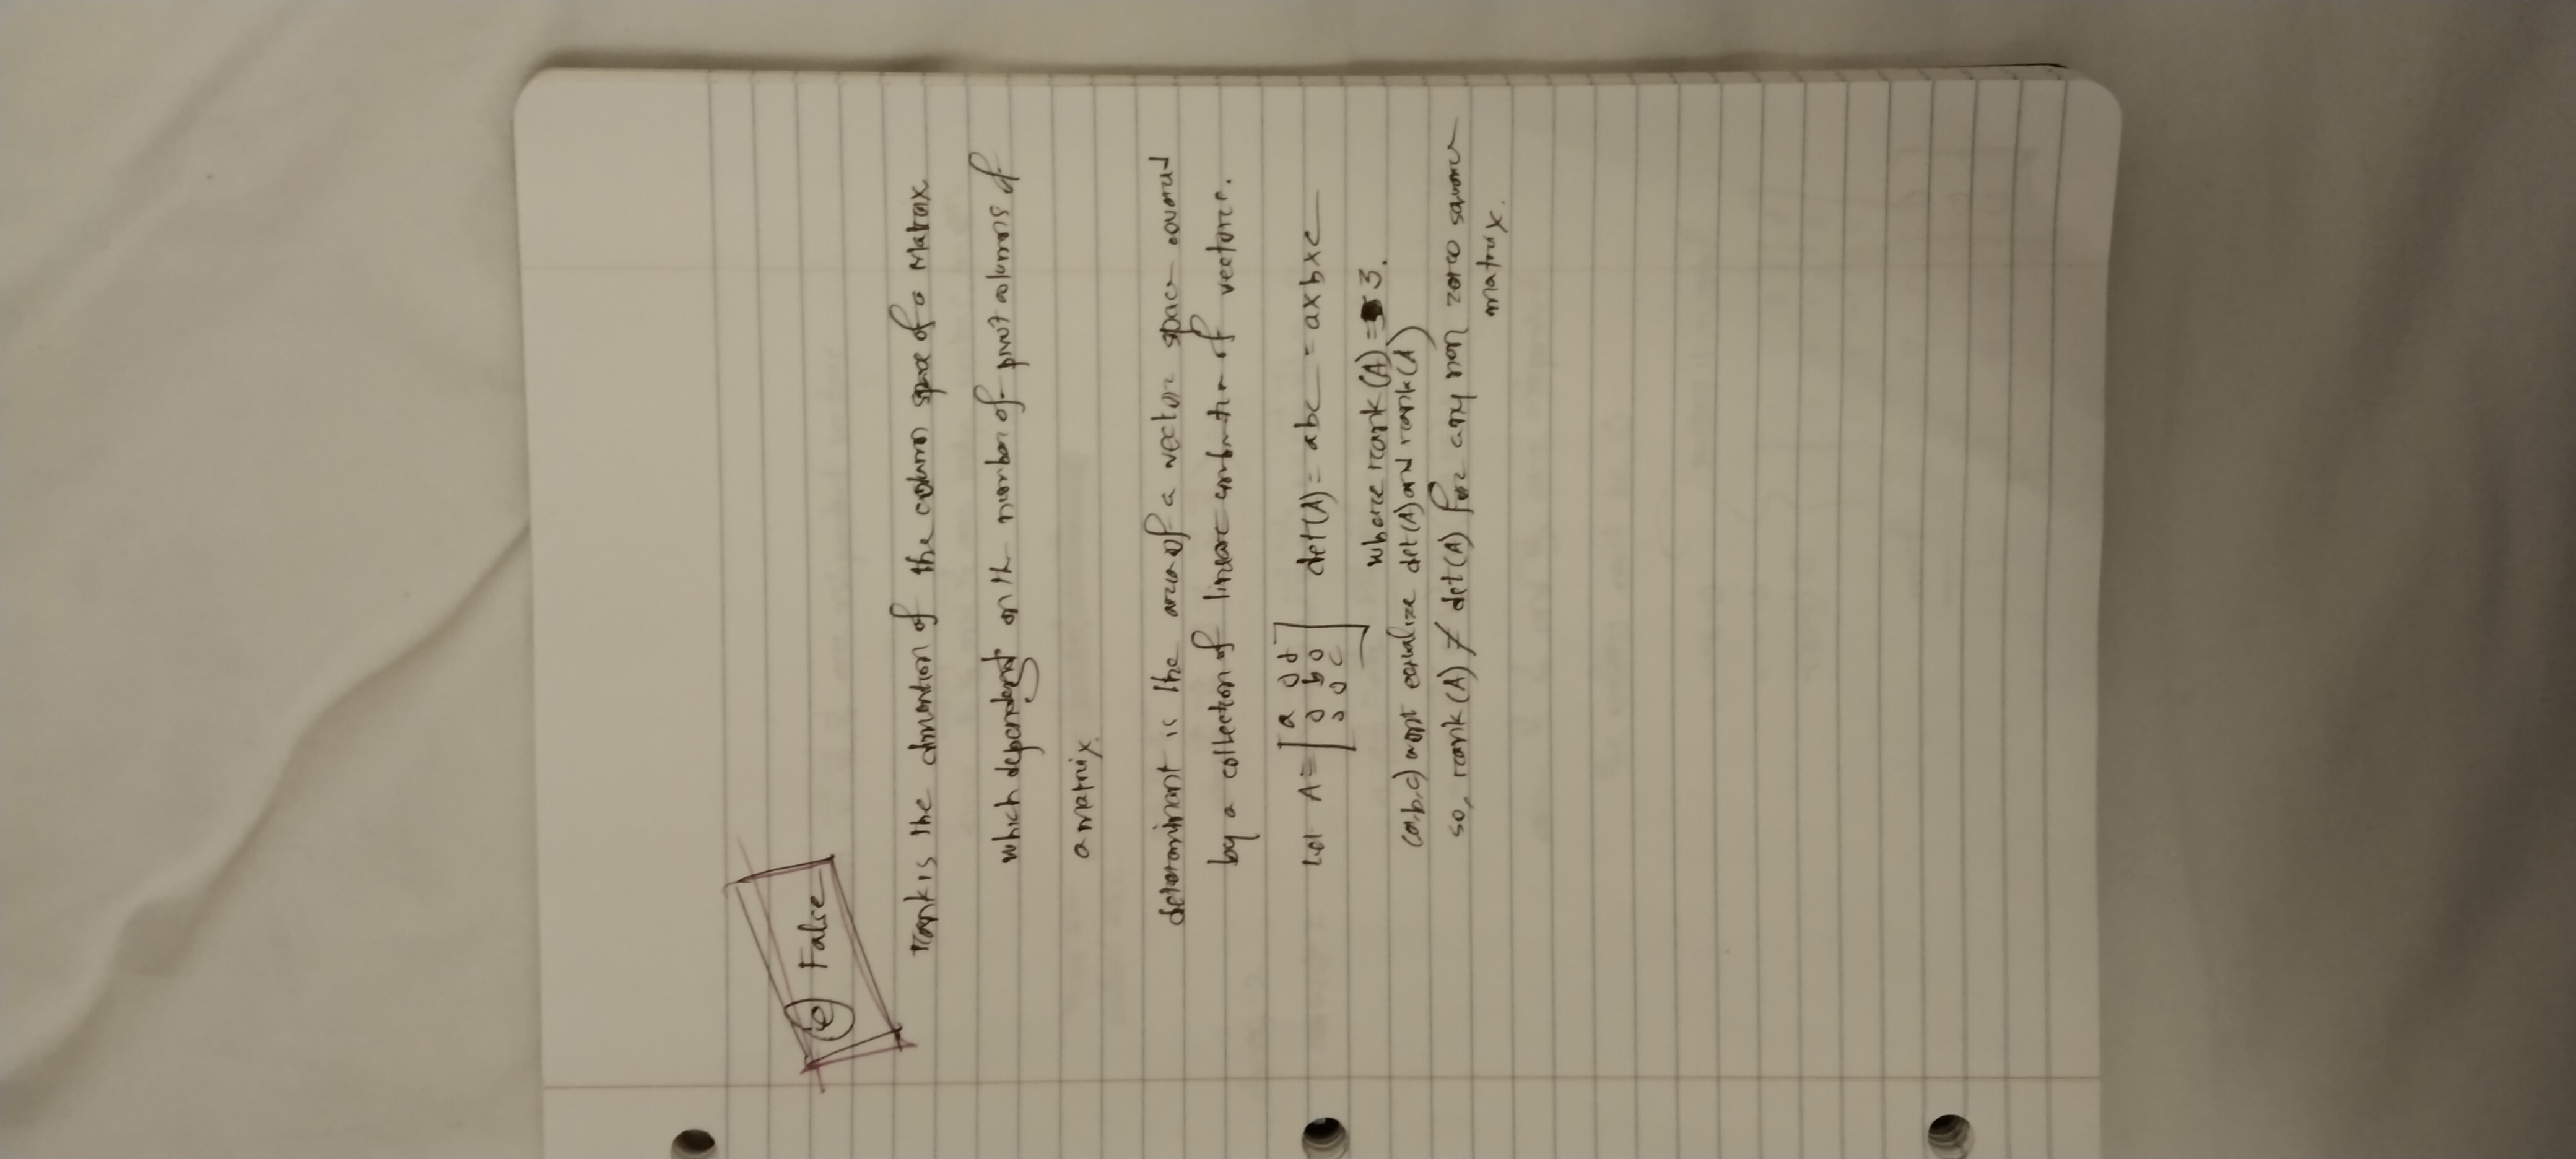 e False
rank is the dimention of the column space of a Matrix
which dependent on th number of pivot columns of
a matrix.
determinant is the area of a vector space covered
by a collection of linear combination of vectors.
Let A = [a 0 0
0 b 0
0 0 c] det(A) = abc = a×b×c
where rank (A) = 3.
(a,b,c) wont equalize det(A) and rank(A)
so, rank (A) ≠ det(A) for any non zero square
matrix.